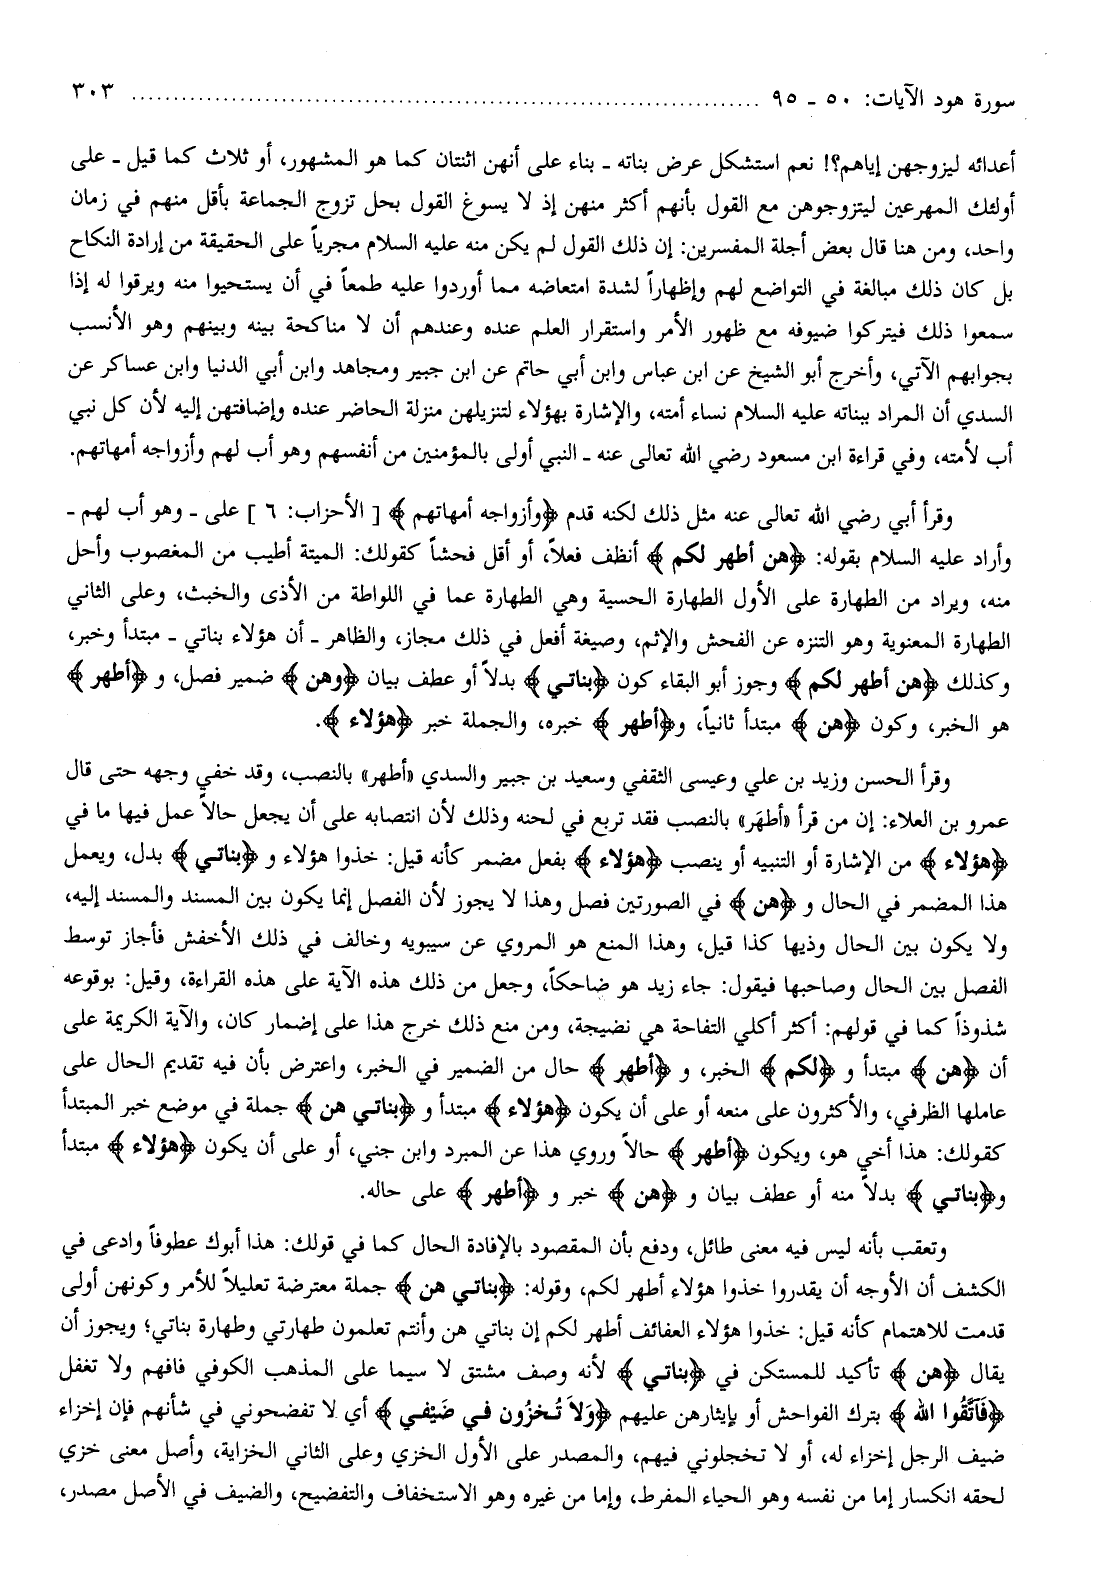 سورة هود الآيات: ٥٠ ـ ٩٥ ........................................ ٣٠٣
أعدائه ليزوجهن إياهم؟! نعم استشكل عرض بناته ـ بناء على أنهن اثنتان كما هو المشهور، أو ثلاث كما قيل ـ على
أولئك المهرعين ليتزوجوهن مع القول بأنهم أكثر منهن إذ لا يسوغ القول بحل تزوج الجماعة بأقل منهم في زمان
واحد، ومن هنا قال بعض أجلة المفسرين: إن ذلك القول لم يكن منه عليه السلام مجرياً على الحقيقة من إرادة النكاح
بل كان ذلك مبالغة في التواضع لهم وإظهاراً لشدة امتعاضه مما أوردوا عليه طمعاً في أن يستحيوا منه ويرقوا له إذا
سمعوا ذلك فيتركوا ضيوفه مع ظهور الأمر واستقرار العلم عنده وعندهم أن لا مناكحة بينه وبينهم وهو الأنسب
بجوابهم الآتي، وأخرج أبو الشيخ عن ابن عباس وابن أبي حاتم عن ابن جبير ومجاهد وابن أبي الدنيا وابن عساكر عن
السدي أن المراد ببناته عليه السلام نساء أمته، والإشارة بهؤلاء لتنزيلهن منزلة الحاضر عنده وإضافتهن إليه لأن كل نبي
أب لأمته، وفي قراءة ابن مسعود رضي الله تعالى عنه ـ النبي أولى بالمؤمنين من أنفسهم وهو أب لهم وأزواجه أمهاتهم.
وقرأ أبي رضي الله تعالى عنه مثل ذلك لكنه قدم ﴿وأزواجه أمهاتهم﴾ [ الأحزاب: ٦ ] على ـ وهو أب لهم ـ
وأراد عليه السلام بقوله: ﴿هن أطهر لكم﴾ أنظف فعلاً، أو أقل فحشاً كقولك: الميتة أطيب من المغصوب وأحل
منه، ويراد من الطهارة على الأول الطهارة الحسية وهي الطهارة عما في اللواطة من الأذى والخبث، وعلى الثاني
الطهارة المعنوية وهو التنزه عن الفحش والإثم، وصيغة أفعل في ذلك مجاز، والظاهر ـ أن هؤلاء بناتي ـ مبتدأ وخبر،
وكذلك ﴿هن أطهر لكم﴾ وجوز أبو البقاء كون ﴿بناتي﴾ بدلاً أو عطف بيان ﴿وهن﴾ ضمير فصل، و ﴿أطهر﴾
هو الخبر، وكون ﴿هن﴾ مبتدأ ثانياً، و﴿أطهر﴾ خبره، والجملة خبر ﴿هؤلاء﴾.
وقرأ الحسن وزيد بن علي وعيسى الثقفي وسعيد بن جبير والسدي «أطهر» بالنصب، وقد خفي وجهه حتى قال
عمرو بن العلاء: إن من قرأ «أطهَر» بالنصب فقد تربع في لحنه وذلك لأن انتصابه على أن يجعل حالاً عمل فيها ما في
﴿هؤلاء﴾ من الإشارة أو التنبيه أو ينصب ﴿هؤلاء﴾ بفعل مضمر كأنه قيل: خذوا هؤلاء و ﴿بناتي﴾ بدل، ويعمل
هذا المضمر في الحال و ﴿هن﴾ في الصورتين فصل وهذا لا يجوز لأن الفصل إنما يكون بين المسند والمسند إليه،
ولا يكون بين الحال وذيها كذا قيل، وهذا المنع هو المروي عن سيبويه وخالف في ذلك الأخفش فأجاز توسط
الفصل بين الحال وصاحبها فيقول: جاء زيد هو ضاحكاً، وجعل من ذلك هذه الآية على هذه القراءة، وقيل: بوقوعه
شذوذاً كما في قولهم: أكثر أكلي التفاحة هي نضيجة، ومن منع ذلك خرج هذا على إضمار كان، والآية الكريمة على
أن ﴿هن﴾ مبتدأ و ﴿لكم﴾ الخبر، و ﴿أطهر﴾ حال من الضمير في الخبر، واعترض بأن فيه تقديم الحال على
عاملها الظرفي، والأكثرون على منعه أو على أن يكون ﴿هؤلاء﴾ مبتدأ و ﴿بناتي هن﴾ جملة في موضع خبر المبتدأ
كقولك: هذا أخي هو، ويكون ﴿أطهر﴾ حالاً وروي هذا عن المبرد وابن جني، أو على أن يكون ﴿هؤلاء﴾ مبتدأ
و﴿بناتي﴾ بدلاً منه أو عطف بيان و ﴿هن﴾ خبر و ﴿أطهر﴾ على حاله.
وتعقب بأنه ليس فيه معنى طائل، ودفع بأن المقصود بالإفادة الحال كما في قولك: هذا أبوك عطوفاً وادعى في
الكشف أن الأوجه أن يقدروا خذوا هؤلاء أطهر لكم، وقوله: ﴿بناتي هن﴾ جملة معترضة تعليلاً للأمر وكونهن أولى
قدمت للاهتمام كأنه قيل: خذوا هؤلاء العفائف أطهر لكم إن بناتي هن وأنتم تعلمون طهارتي وطهارة بناتي؛ ويجوز أن
يقال ﴿هن﴾ تأكيد للمستكن في ﴿بناتي﴾ لأنه وصف مشتق لا سيما على المذهب الكوفي فافهم ولا تغفل
﴿فَاتَّقُوا الله﴾ بترك الفواحش أو بإيثارهن عليهم ﴿وَلاَ تُخزُون في ضَيْفي﴾ أي لا تفضحوني في شأنهم فإن إخزاء
ضيف الرجل إخزاء له، أو لا تخجلوني فيهم، والمصدر على الأول الخزي وعلى الثاني الخزاية، وأصل معنى خزي
لحقه انكسار إما من نفسه وهو الحياء المفرط، وإما من غيره وهو الاستخفاف والتفضيح، والضيف في الأصل مصدر،